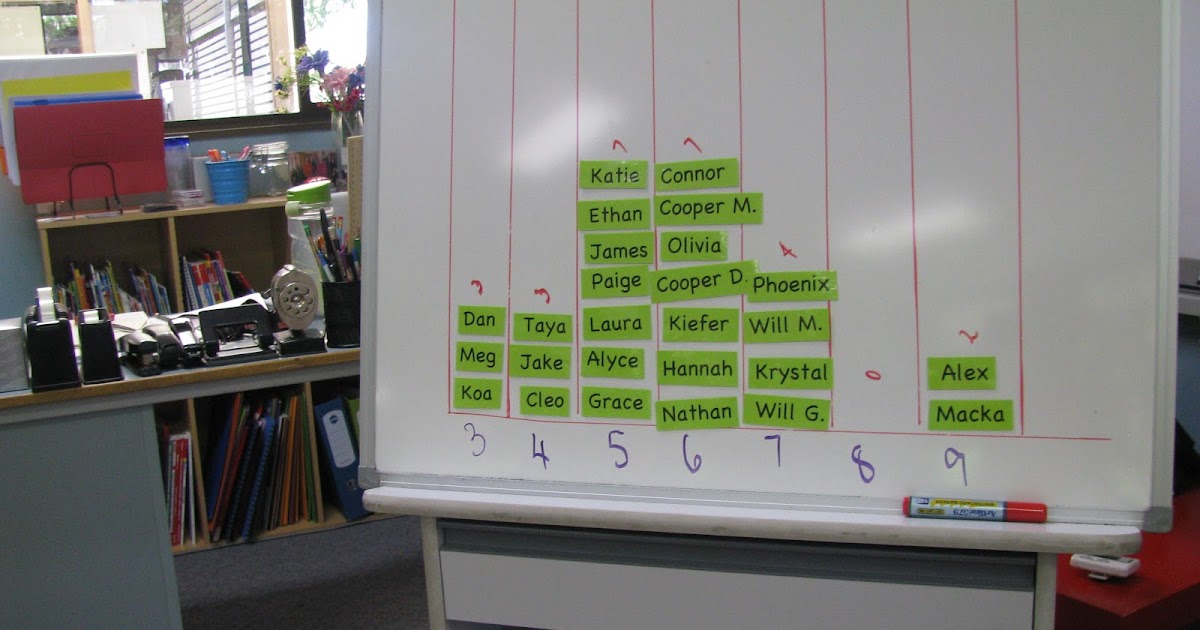 7 7
Katie Connor
Ethan Cooper M.
James Olivia 4
3 3 Paige Cooper D. Phoenix
Dan Taya Laura Kiefer Will M. 2
Meg Jake Alyce Hannah Krystal 0 Alex
Koa Cleo Grace Nathan Will G. Macka
3 4 5 6 7 8 9
Artline 579